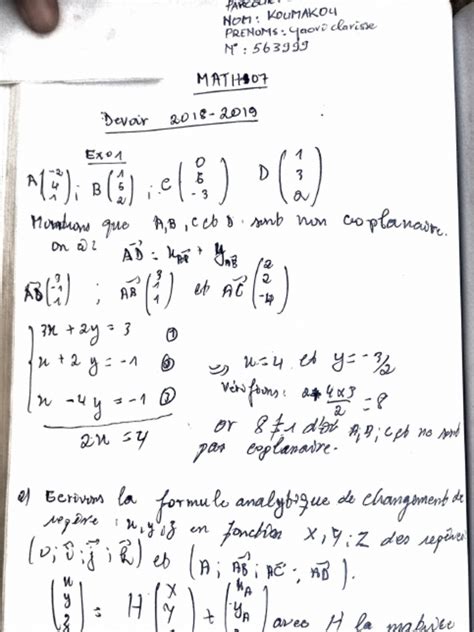 PARCOURS:
NOM: KOUMAKOU
PRENOMS: Yaovi clarisse
N°: 563999
MATH107
Devoir 2018-2019
Exo1
A(-2 4 1); B(1 5 2); C(0 6 -3) D(1 3 a)
Montrons que A, B, C et D sont non coplanaire.
on a: AD = xAB + yAC
AD(3 -1 -1); AB(3 1 1) et AC(2 2 -4)
3x + 2y = 3 ①
x + 2y = -1 ②
x - 4y = -1 ③
2x = 4
=> x=4 et y = -3/2
Vérifions: 2+ 4x3/2 = 8
or 8 ≠ 1 dt A, B, C et no sont
pas coplanaire.
2) Ecrivons la formule analytique de changement de
repère: x, y, z en fonction X, Y, Z des repères
(O; i; j; k) et (A; AB; AC; AD).
(x y z) = H (X Y) + (xA yA) avec H la matrice